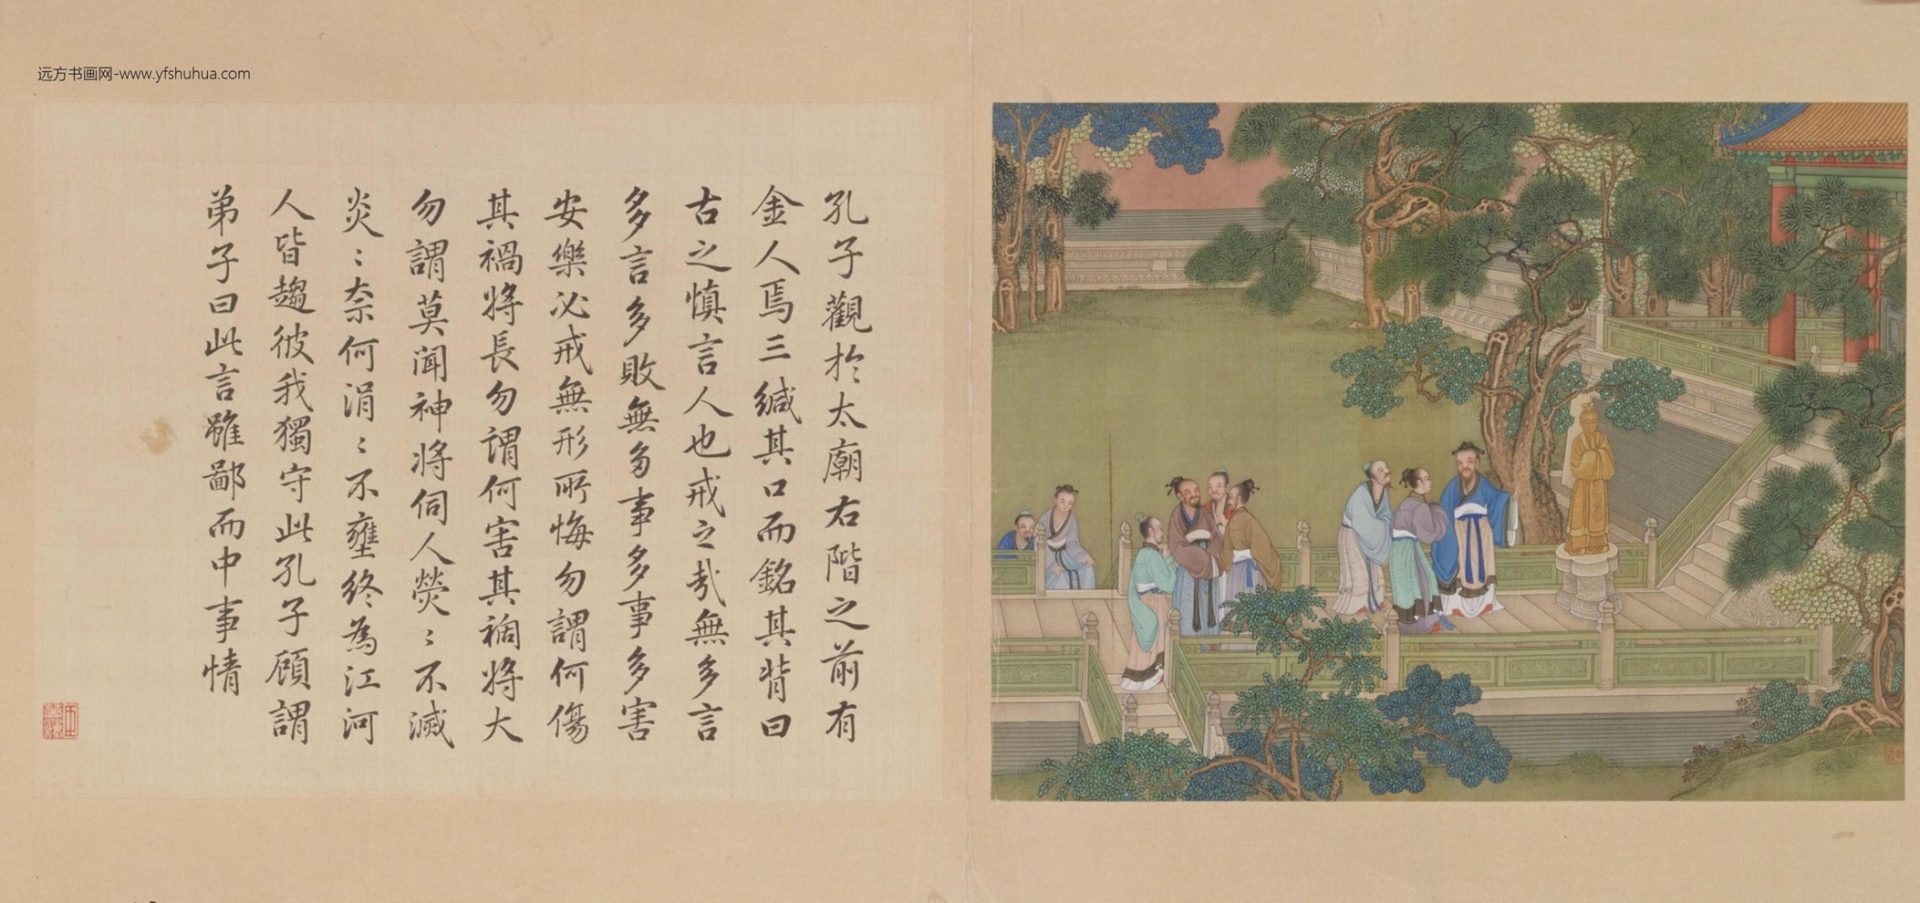 远方书画网-www.yfshuhua.com
孔子觀於太廟右階之前有
金人焉三緘其口而銘其背曰
古之慎言人也戒之哉無多言
多言多敗無多事多事多害
安樂必戒無形所悔勿謂何傷
其禍將長勿謂何害其禍將大
勿謂莫聞神將伺人熒〻不滅
炎〻奈何涓〻不壅終為江河
人皆趨彼我獨守此孔子顧謂
弟子曰此言雖鄙而中事情